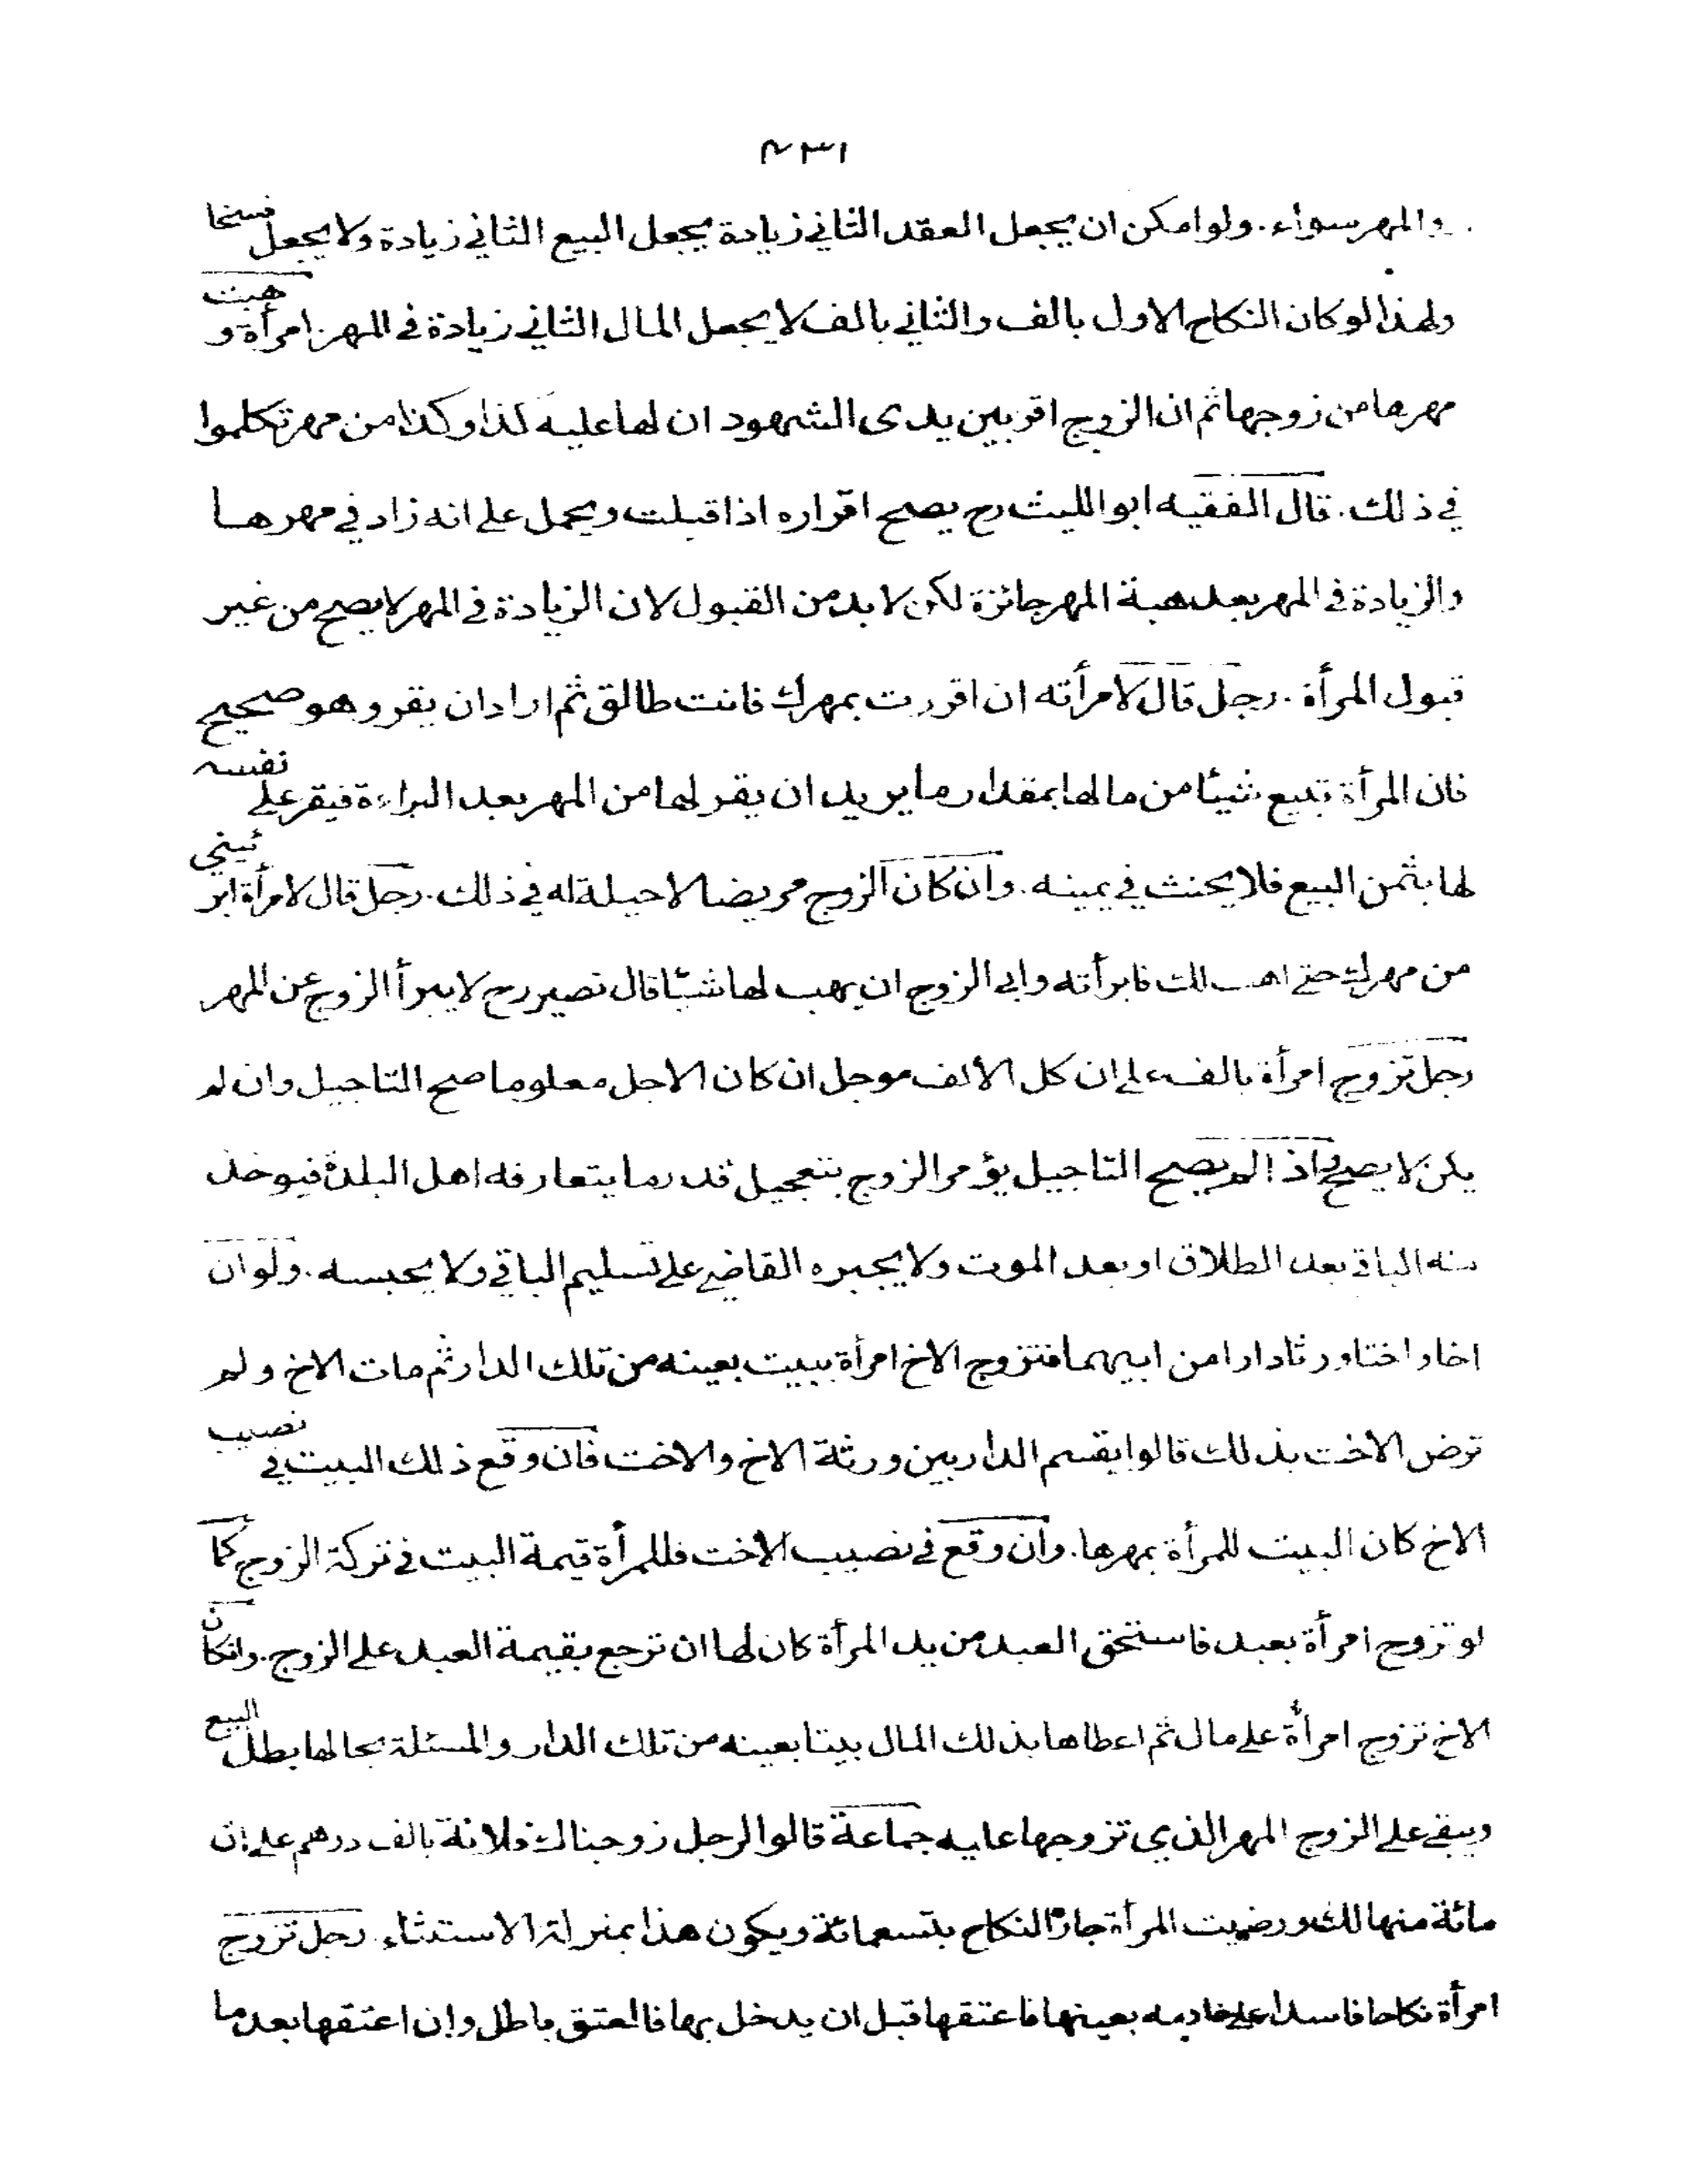 ٤٣١
والمهر سواء . ولو امكن ان يجعل العقد الثاني زيادة يجعل البيع الثاني زيادة ولا يجعل فسخا
ولهذا لو كان النكاح الاول بالف والثاني بالف لا يجعل المال الثاني زيادة في المهر . امرأة وهبت
مهرها من زوجها ثم ان الزوج اقر بين يدى الشهود ان لها عليه كذا وكذا من مهر تكلموا
في ذلك . قال الفقيه ابو الليث رح يصح اقراره اذا قبلت ويحمل على انه زاد في مهرها
والزيادة في المهر بعد هبة المهر جائزة لكن لا بد من القبول لان الزيادة في المهر لا يصح من غير
قبول المرأة . رجل قال لامرأته ان اقررت بمهرك فانت طالق ثم اراد ان يقر وهو صحيح
فان المرأة تبيع شيئا من مالها بمقدار ما يريد ان يقر لها من المهر بعد البراءة فيقر على نفسه
لها بثمن البيع فلا يحنث في يمينه . وان كان الزوج مريضا لا حيلة له في ذلك . رجل قال لامرأة ابرئيني
من مهرك حتى اهب لك فابرأته وابى الزوج ان يهب لها شيئا قال نصير رح لا يبرأ الزوج عن المهر
رجل تزوج امرأة بالف على ان كل الألف موجل ان كان الاجل معلوما صح التاجيل وان لم
يكن لا يصح واذا لم يصح التاجيل يؤمر الزوج بتعجيل قدر ما يتعارفه اهل البلدة فيوخذ
منه الباقي بعد الطلاق او بعد الموت ولا يجبره القاضي على تسليم الباقي ولا يحبسه . ولو ان
اخا واختا ورثا دارا من ابيهما فتزوج الاخ امرأة ببيت بعينه من تلك الدار ثم مات الاخ ولم
ترض الاخت بذلك قالوا يقسم الدار بين ورثة الاخ والاخت فان وقع ذلك البيت في نصيب
الاخ كان البيت للمرأة بمهرها . وان وقع في نصيب الاخت فللمرأة قيمة البيت في تركة الزوج كما
لو تزوج امرأة بعبد فاستحق العبد من يد المرأة كان لها ان ترجع بقيمة العبد على الزوج . وانكان
الاخ تزوج امرأة على مال ثم اعطاها بذلك المال بيتا بعينه من تلك الدار والمسئلة بحالها بطل البيع
ويبقى على الزوج المهر الذي تزوجها عليه جماعة قالوا لرجل زوجناك فلانة بالف درهم على ان
مائة منها لك ورضيت المرأة جاز النكاح بتسعمائة ويكون هذا بمنزلة الاستثناء رجل تزوج
امرأة نكاحا فاسدا على خادمه بعينها فاعتقها قبل ان يدخل بها فالعتق باطل وان اعتقها بعد ما